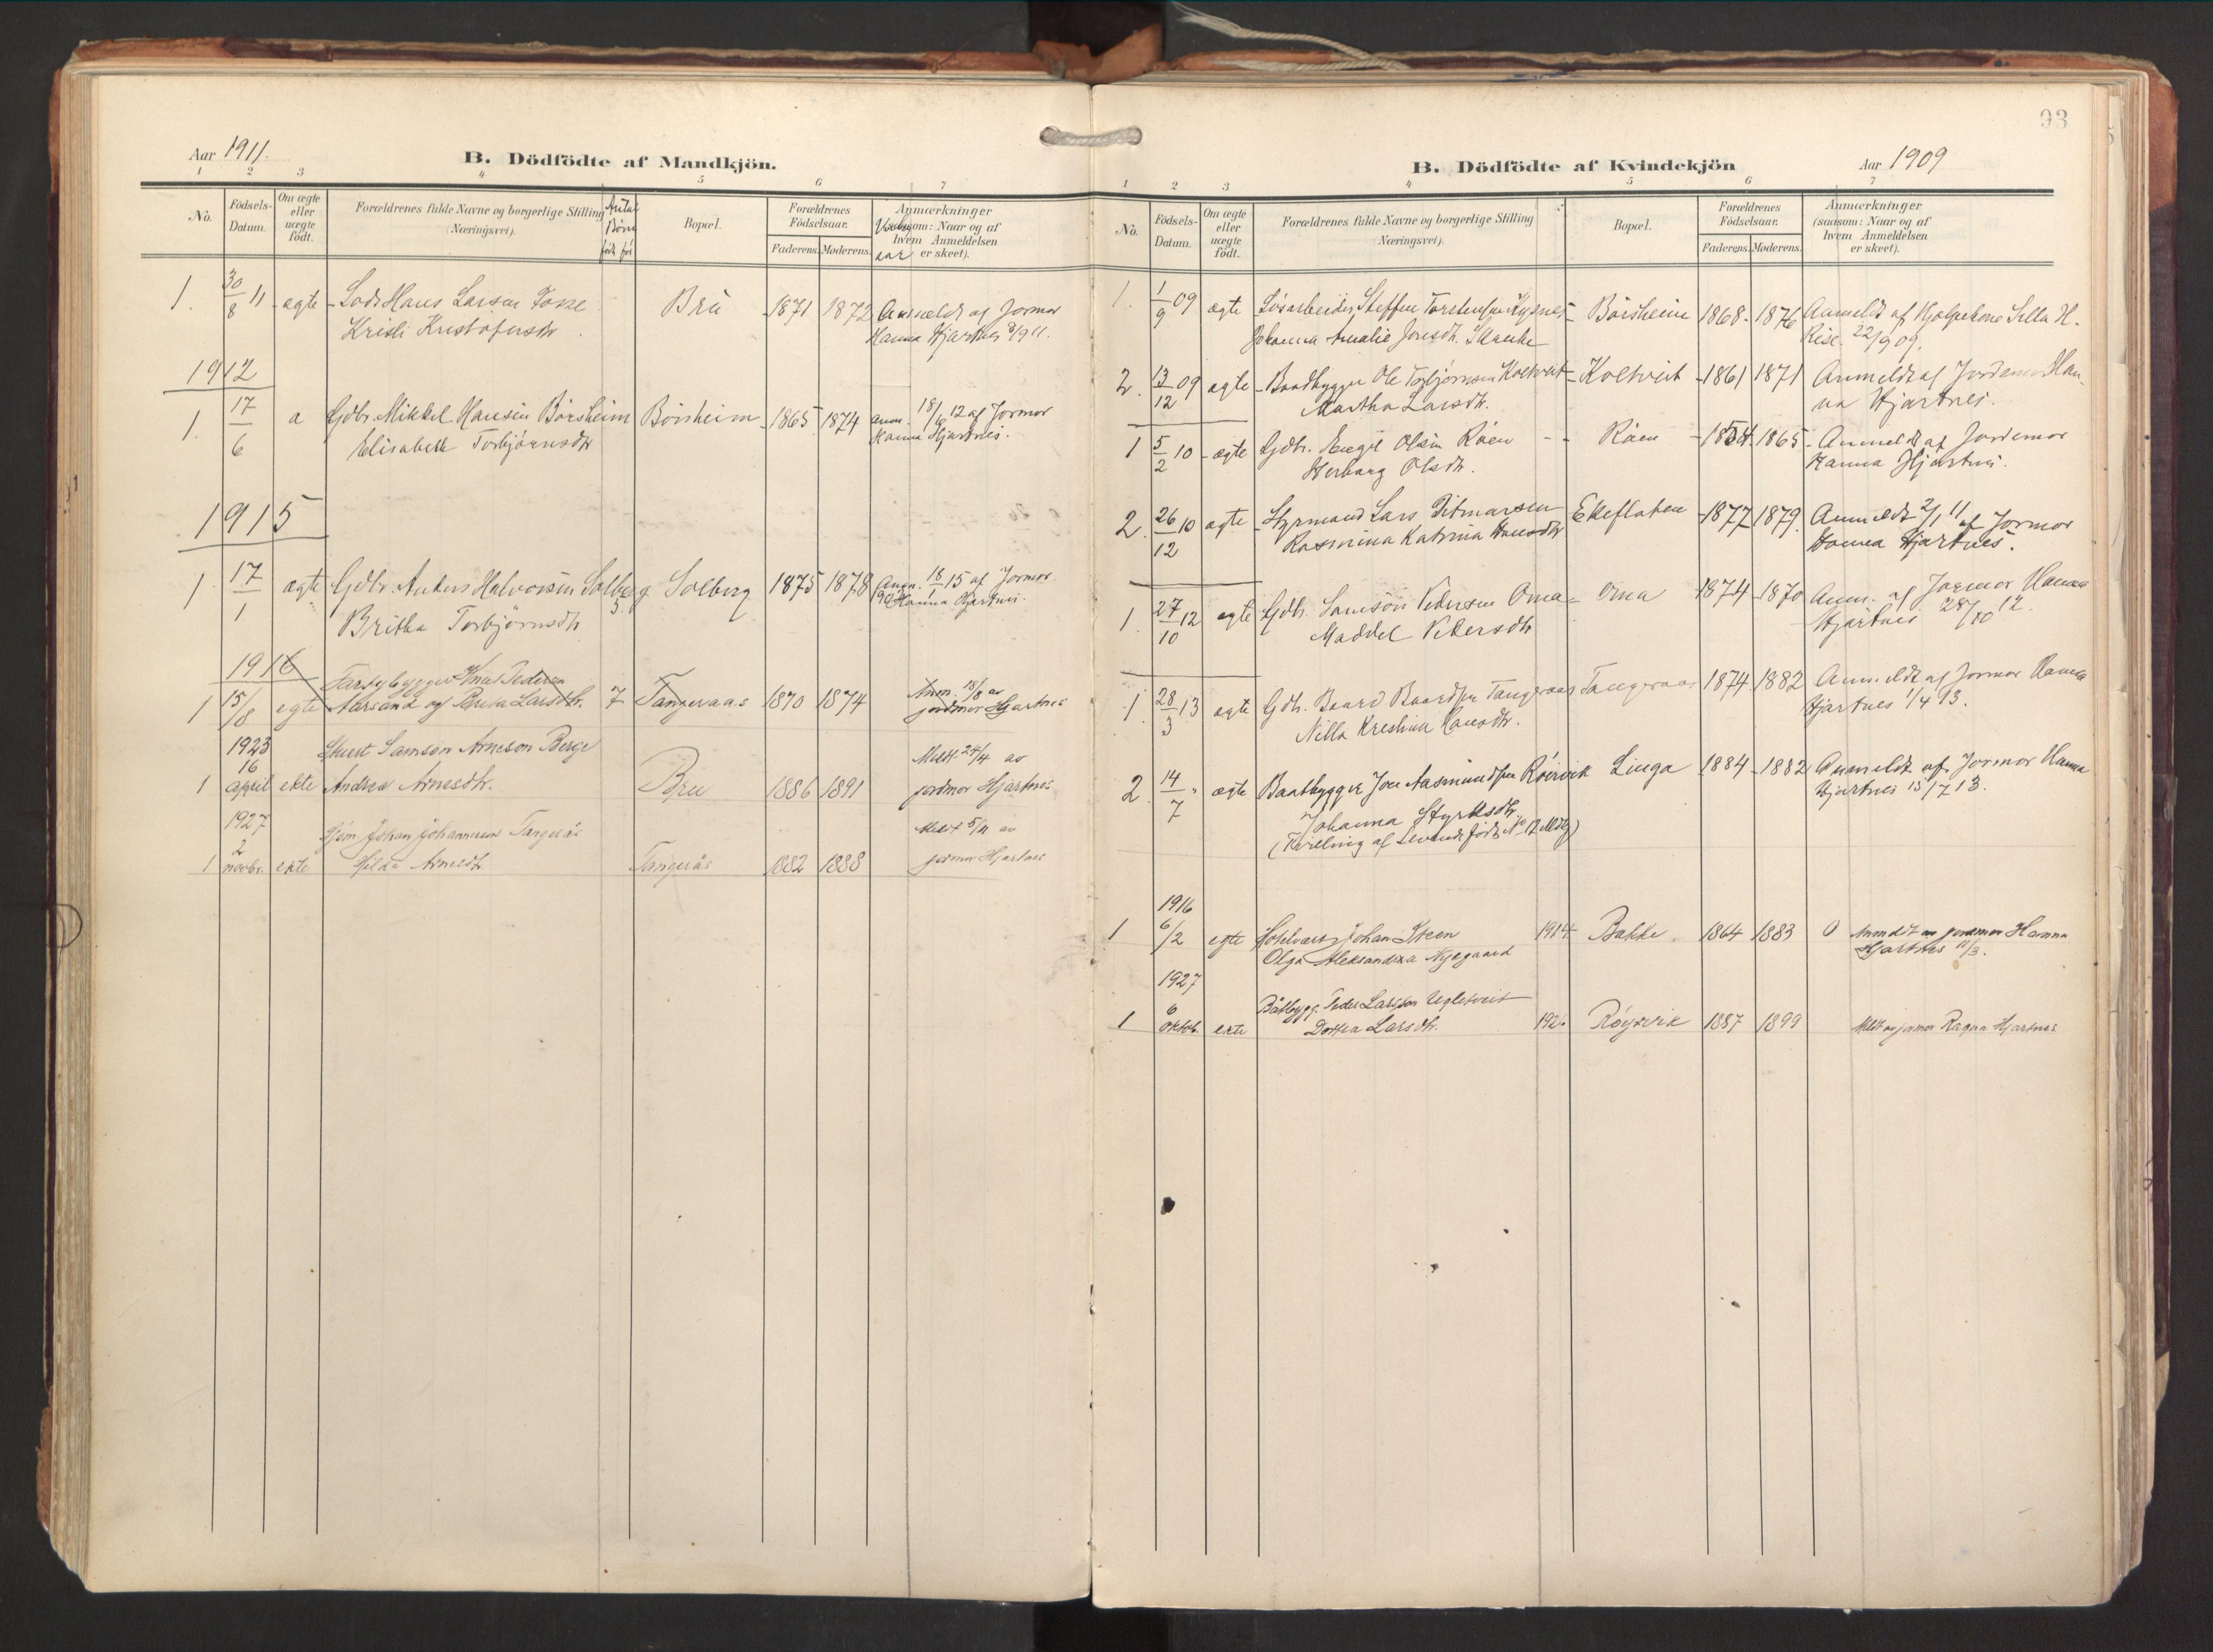 Aar 1911.
B. Dödfödte af Mandkjön.
1 2 3 4 5 6 7
No.
Födsels-Datum.
Om ægte eller uægte födt.
Forældrenes fulde Navne og borgerlige Stilling (Næringsvei).
Antal Börn födt før
Bopæl.
Forældrenes Födselsaar.
Faderens. Moderens.
Anmærkninger (saasom: Naar og af hvem Anmeldelsen er skeet).
1. 30/8 11 - ægte - Lods Hans Larsen Fosse Brü - 1871 1872 Anmeldt af Jormor
Kristi Kristofersdtr Hanna Hjartnes 3/9 11.
1912
1. 17/6 a Gdbr. Mikkel Hansen Börsheim Börsheim - 1865 1874 Anm. 18/6 12 af Jormor
Elisabeth Torbjörnsdtr Hanna Hjartnes.
1915
1. 17/1 ægte Gdbr. Anders Halvorsen Solberg Solberg 1875 1878 Anm. 18/1 15 af Jormor
Britha Torbjörnsdtr 5. Hanna Hjartnes
1916
Fartøybygger Knut Pedersen Anm. 15/8 av
1 15/8 egte Aarsand og Brita Larsdtr. 7 Tangeraas 1870 1874 jordmor Hjartnes
1923
16 Skuest Samson Arneson Berge Meldt 24/4 av
1 april ekte Andrea Arnesdtr. Bru 1886 1891 jordmor Hjartnes
1927
2 Johan Johannesen Tangerås Meldt 5/11 av
1 novbr. ekte Hilda Arnesdtr. Tangerås 1882 1888 jormor Hjartnes
93
B. Dödfödte af Kvindekjön
Aar 1909
1 2 3 4 5 6 7
No.
Födsels-Datum.
Om ægte eller uægte födt.
Forældrenes fulde Navne og borgerlige Stilling (Næringsvei).
Bopæl.
Forældrenes Födselsaar.
Faderens. Moderens.
Anmærkninger (saasom: Naar og af hvem Anmeldelsen er skeet).
1. 1/9 09 ægte Løsarbeider Steffen Torstensen Kysnes - Börsheim 1868 - 1876 Anmeldt af Hjælpekone Silla H.
Johanna Amalie Jonsdtr. Skaale Rise. 22/9 09.
2. 13/12 09 ægte - Baadbygger Ole Torbjørnsen Koltveit - Koltveit - 1861 1871 Anmeldt af Jordemor Han-
Martha Larsdtr. na Hjartnes.
1 5/2 10 - ægte Gdbr. Engel Olsen Röen - - Röen - 1854. 1865 - Anmeldt af Jordemor
Herborg Olsdtr. Hanna Hjartnes.
2. 26/12 10 ægte - Styrmand Lars Ditmarsen Ekeflaten - 1877 1879. Anmeldt 2/1 11 af Jormor
Rasmina Katrina Hansdtr Hanna Hjartnes.
1. 27/10 12 egte Gdb. Samson Pedersen Oma - Oma 1874 - 1870 Anm. af Jormor Hanna
Maddel Pedersdtr Hjartnes 28/10 12.
1. 28/3 13 ægte Gdb. Baard Baardsen Tangeraas Tangeraas 1874 1882 Anmeldt af Jormor Hanna
Nilla Kristina Hansdtr. Hjartnes 1/4 13.
2. 14/7 " ægte Baatbygger Jon Aasmundsen Röirvik Linga 1884 - 1882 Anmeldt af Jormor Hanna
Johanna Styrksdtr. Hjartnes 15/7 13.
(Tvilling af Levende födt No 12 Mkj)
1916
1 6/2 egte Hotelvært Johan Steen 1914 Bakke 1864 1883 0 Anmeldt av jordemor Hanna
Olga Aleksandra Nygaard Hjartnes 11/3.
1927
6 Båtbygg. Peder Larsson Ugletveit
1 oktob. ekte Dortea Larsdtr. Röyrvik 1887 1899 Meldt av jormor Ragna Hjartnes